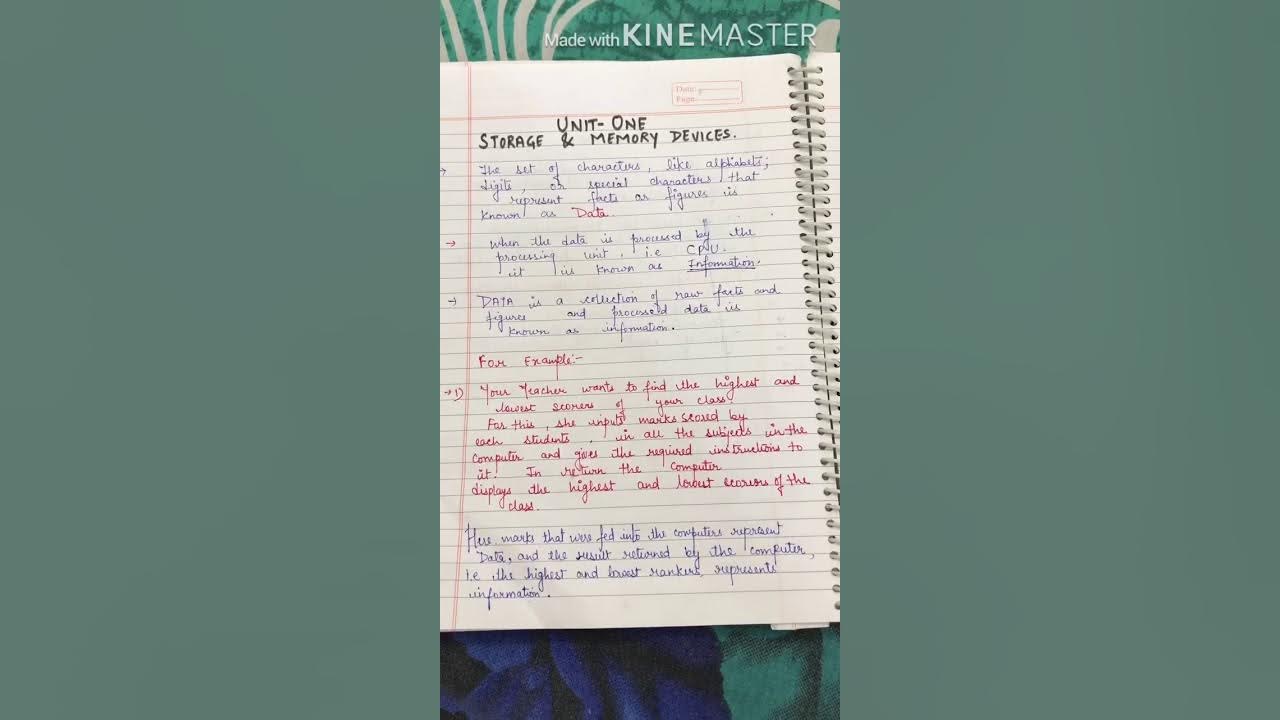 Made with KINEMASTER
Date:
Page:
UNIT-ONE
STORAGE & MEMORY DEVICES.
→ The set of characters, like alphabets;
digits, or special characters that
represent facts or figures is
known as Data.
→ When the data is processed by the
processing unit, i.e CPU.
it is known as Information.
→ DATA is a collection of raw facts and
figures and processed data is
known as information.
For Example:-
→ 1) Your Teacher wants to find the highest and
lowest scorers of your class.
For this, she inputs marks scored by
each students, in all the subjects in the
computer and gives the required instructions to
it. In return the computer
displays the highest and lowest scorers of the
class.
Here, marks that were fed into the computers represent
Data, and the result returned by the computer,
i.e the highest and lowest rankers, represents
information.